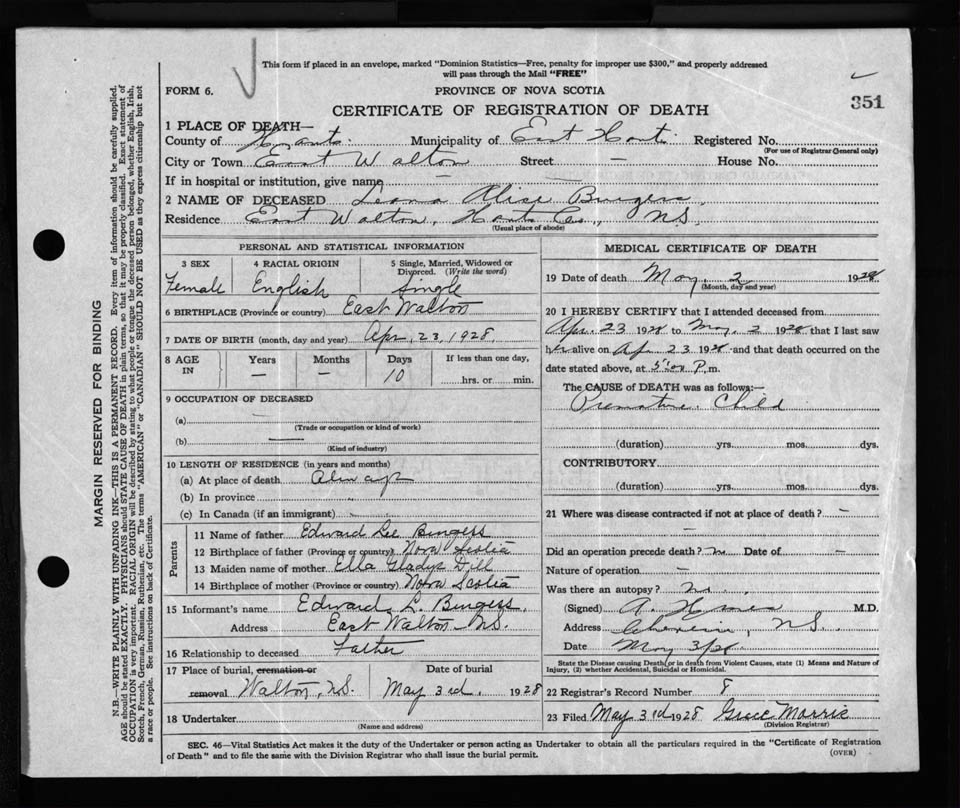 This form if placed in an envelope, marked "Dominion Statistics—Free, penalty for improper use $300," and properly addressed
will pass through the Mail "FREE"
FORM 6.
PROVINCE OF NOVA SCOTIA
351
CERTIFICATE OF REGISTRATION OF DEATH
1 PLACE OF DEATH—
County of Hants Municipality of East Hants Registered No.
(For use of Registrar General only)
City or Town East Walton Street — House No.
If in hospital or institution, give name —
2 NAME OF DECEASED Leona Alice Burgess
Residence East Walton, Hants Co., N.S.
(Usual place of abode)
PERSONAL AND STATISTICAL INFORMATION
3 SEX 4 RACIAL ORIGIN 5 Single, Married, Widowed or Divorced. (Write the word)
Female English Single
6 BIRTHPLACE (Province or country) East Walton
7 DATE OF BIRTH (month, day and year) Apr. 23, 1928.
8 AGE IN Years Months Days If less than one day,
— — 10 hrs. or min.
9 OCCUPATION OF DECEASED
(a) —
(Trade or occupation or kind of work)
(b) —
(Kind of industry)
10 LENGTH OF RESIDENCE (in years and months)
(a) At place of death Always
(b) In province "
(c) In Canada (if an immigrant)
Parents
11 Name of father Edward Lee Burgess
12 Birthplace of father (Province or country) Nova Scotia
13 Maiden name of mother Ella Gladys Dill
14 Birthplace of mother (Province or country) Nova Scotia
15 Informant's name Edward L. Burgess.
Address East Walton N.S.
16 Relationship to deceased Father
17 Place of burial, cremation or removal Walton, N.S. Date of burial May 3rd, 1928
18 Undertaker
(Name and address)
MEDICAL CERTIFICATE OF DEATH
19 Date of death May. 2 1928
(Month, day and year)
20 I HEREBY CERTIFY that I attended deceased from
Apr. 23 1928 to May. 2 1928 that I last saw
her alive on Ap 23 1928 and that death occurred on the
date stated above, at 5:00 P.m.
The CAUSE of DEATH was as follows:—
Premature Child
(duration) yrs. mos. dys.
CONTRIBUTORY
(duration) yrs. mos. dys.
21 Where was disease contracted if not at place of death? —
Did an operation precede death? no Date of —
Nature of operation —
Was there an autopsy? no.
(Signed) A. M.D.
Address N.S.
Date May 3/28
State the Disease causing Death, or in death from Violent Causes, state (1) Means and Nature of
Injury, (2) whether Accidental, Suicidal or Homicidal.
22 Registrar's Record Number 8
23 Filed May 3rd 1928 Grace Morris
(Division Registrar)
SEC. 46—Vital Statistics Act makes it the duty of the Undertaker or person acting as Undertaker to obtain all the particulars required in the "Certificate of Registration
of Death" and to file the same with the Division Registrar who shall issue the burial permit.
(OVER)
MARGIN RESERVED FOR BINDING
N.B.—WRITE PLAINLY WITH UNFADING INK—THIS IS A PERMANENT RECORD. Every item of information should be carefully supplied.
AGE should be stated EXACTLY. PHYSICIANS should STATE CAUSE OF DEATH in plain terms, so that it may be properly classified. Exact statement of
OCCUPATION is very important. RACIAL ORIGIN will be described by stating to what people or tongue the deceased person belonged, whether English, Irish,
Scotch, French, German, Russian, Ruthenian, etc. The terms "AMERICAN" or "CANADIAN" SHOULD NOT BE USED as they express citizenship but not
a race or people. See instructions on back of Certificate.